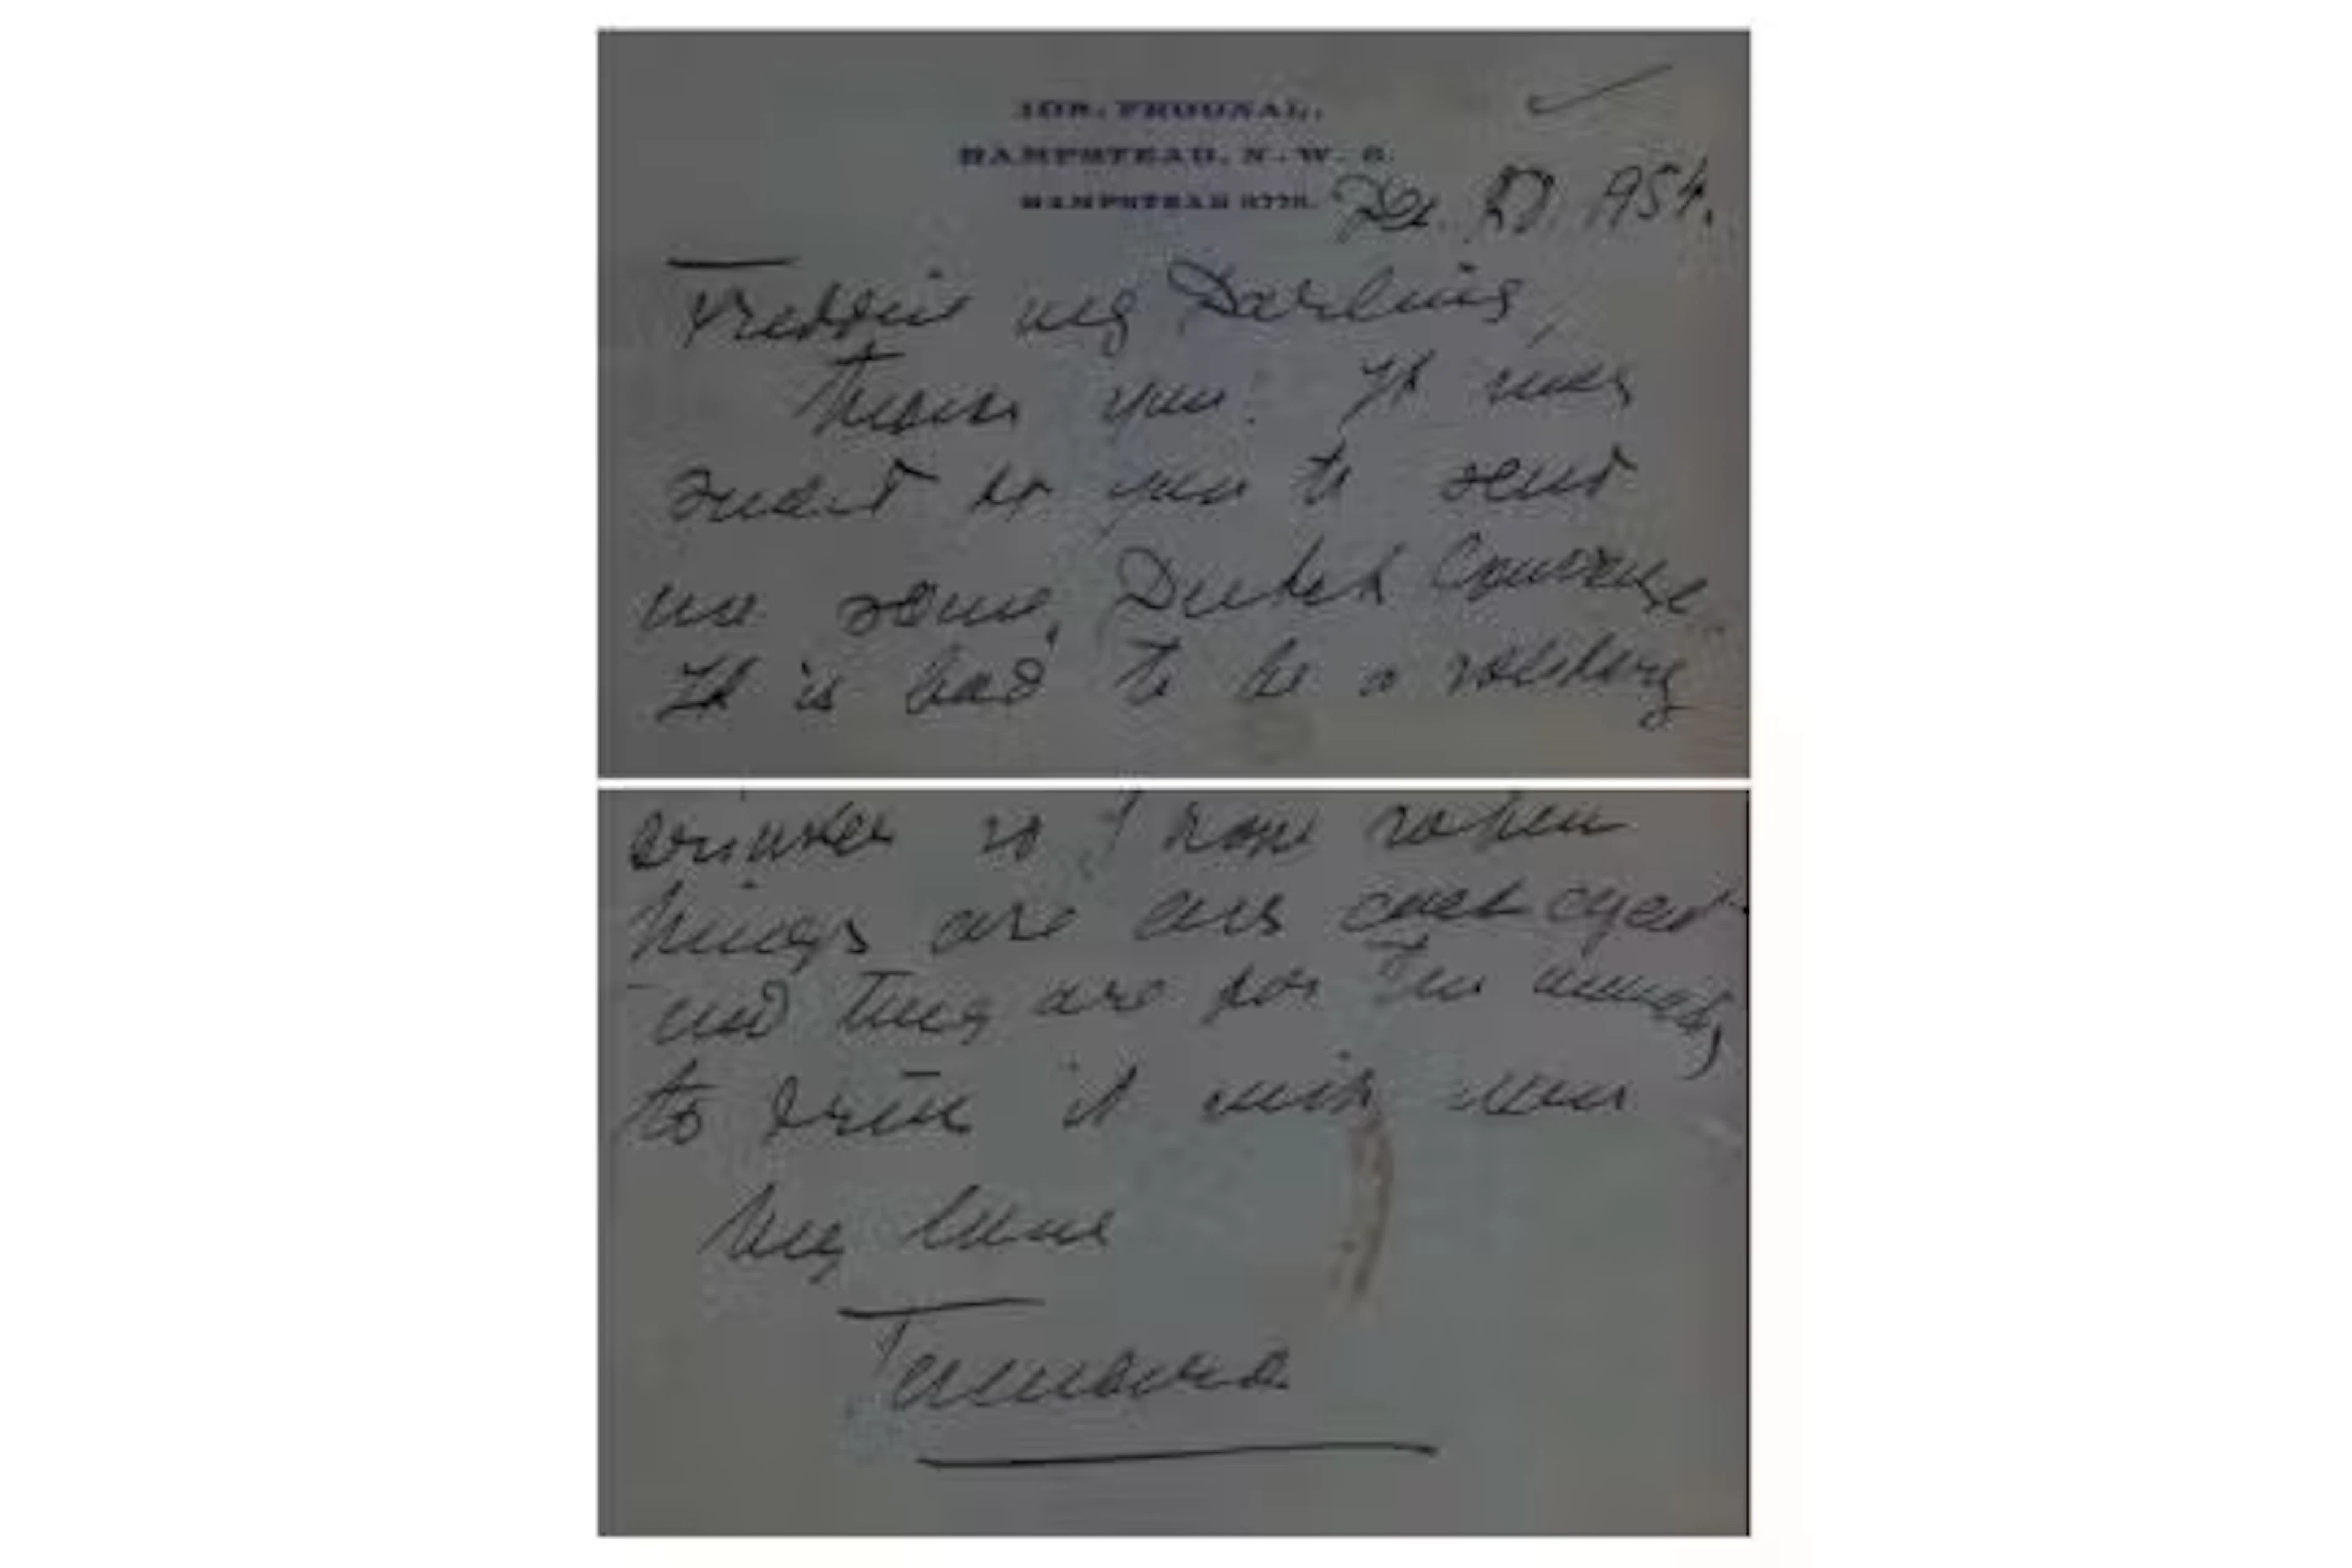 108, FROGNAL,
HAMPSTEAD, N.W. 3.
HAMPSTEAD
Dec. 1954.
Freddie my Darling,
Thank you! It was
sweet of you to send
me some Dutch Courage
It is bad to be a solitary
drinker so I hope when
things are
and they are for the
to drink it with
My love
Tamara